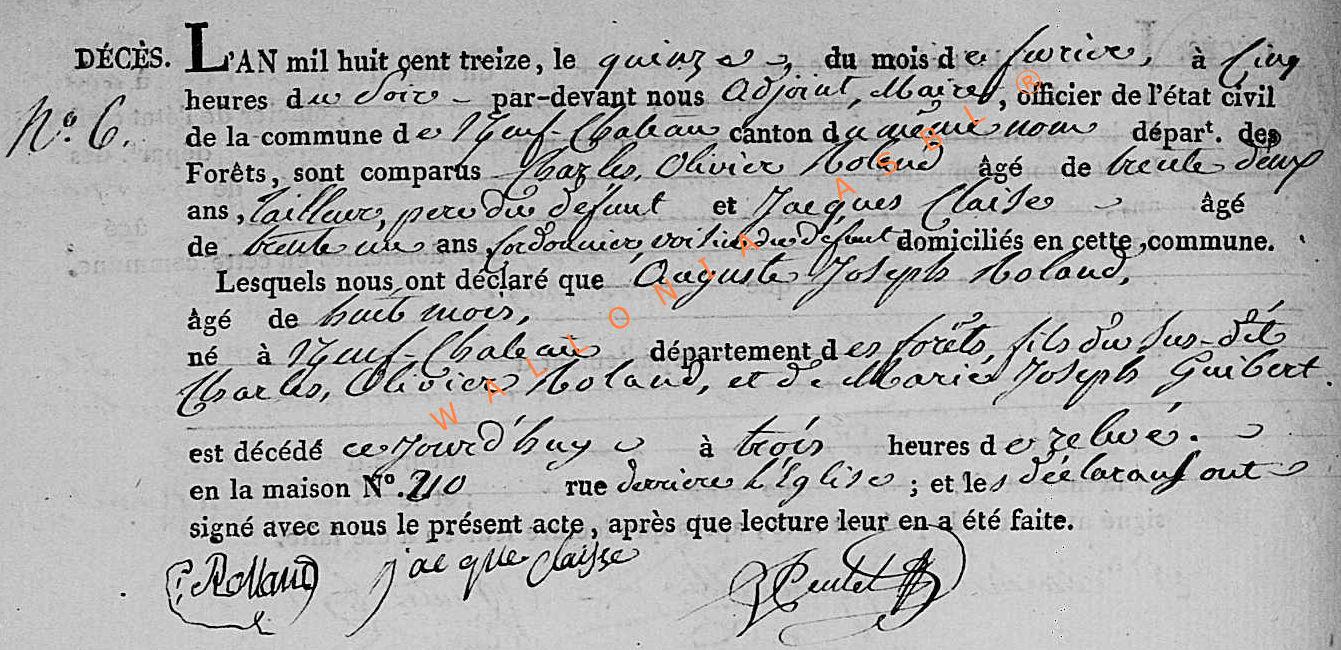 DÉCÈS. L'AN mil huit cent treize, le quinze du mois de fevrier, à Cinq
heures du Soir - par-devant nous Adjoint, Maire, officier de l'état civil
N.o 6. de la commune de Neuf-Chateau canton du même nom départ. des
Forêts, sont comparus Charles, Olivier Roland âgé de trente deux
ans, tailleur, pere du défunt et Jacques Claise âgé
de trente un ans cordonnier, voisin du défunt domiciliés en cette commune.
Lesquels nous ont déclaré que Auguste Joseph Roland,
âgé de huit mois,
né à Neuf-Chateau département des forêts, fils du sus-dit
Charles, Olivier Roland, et de Marie Joseph Guibert.
est décédé ce jourd'huy à trois heures de
en la maison N.o 210 rue derriere l'Eglise ; et les déclarans ont
signé avec nous le présent acte, après que lecture leur en a été faite.
C. Rolland jacque Claisse
WALLONIA ASBL ®